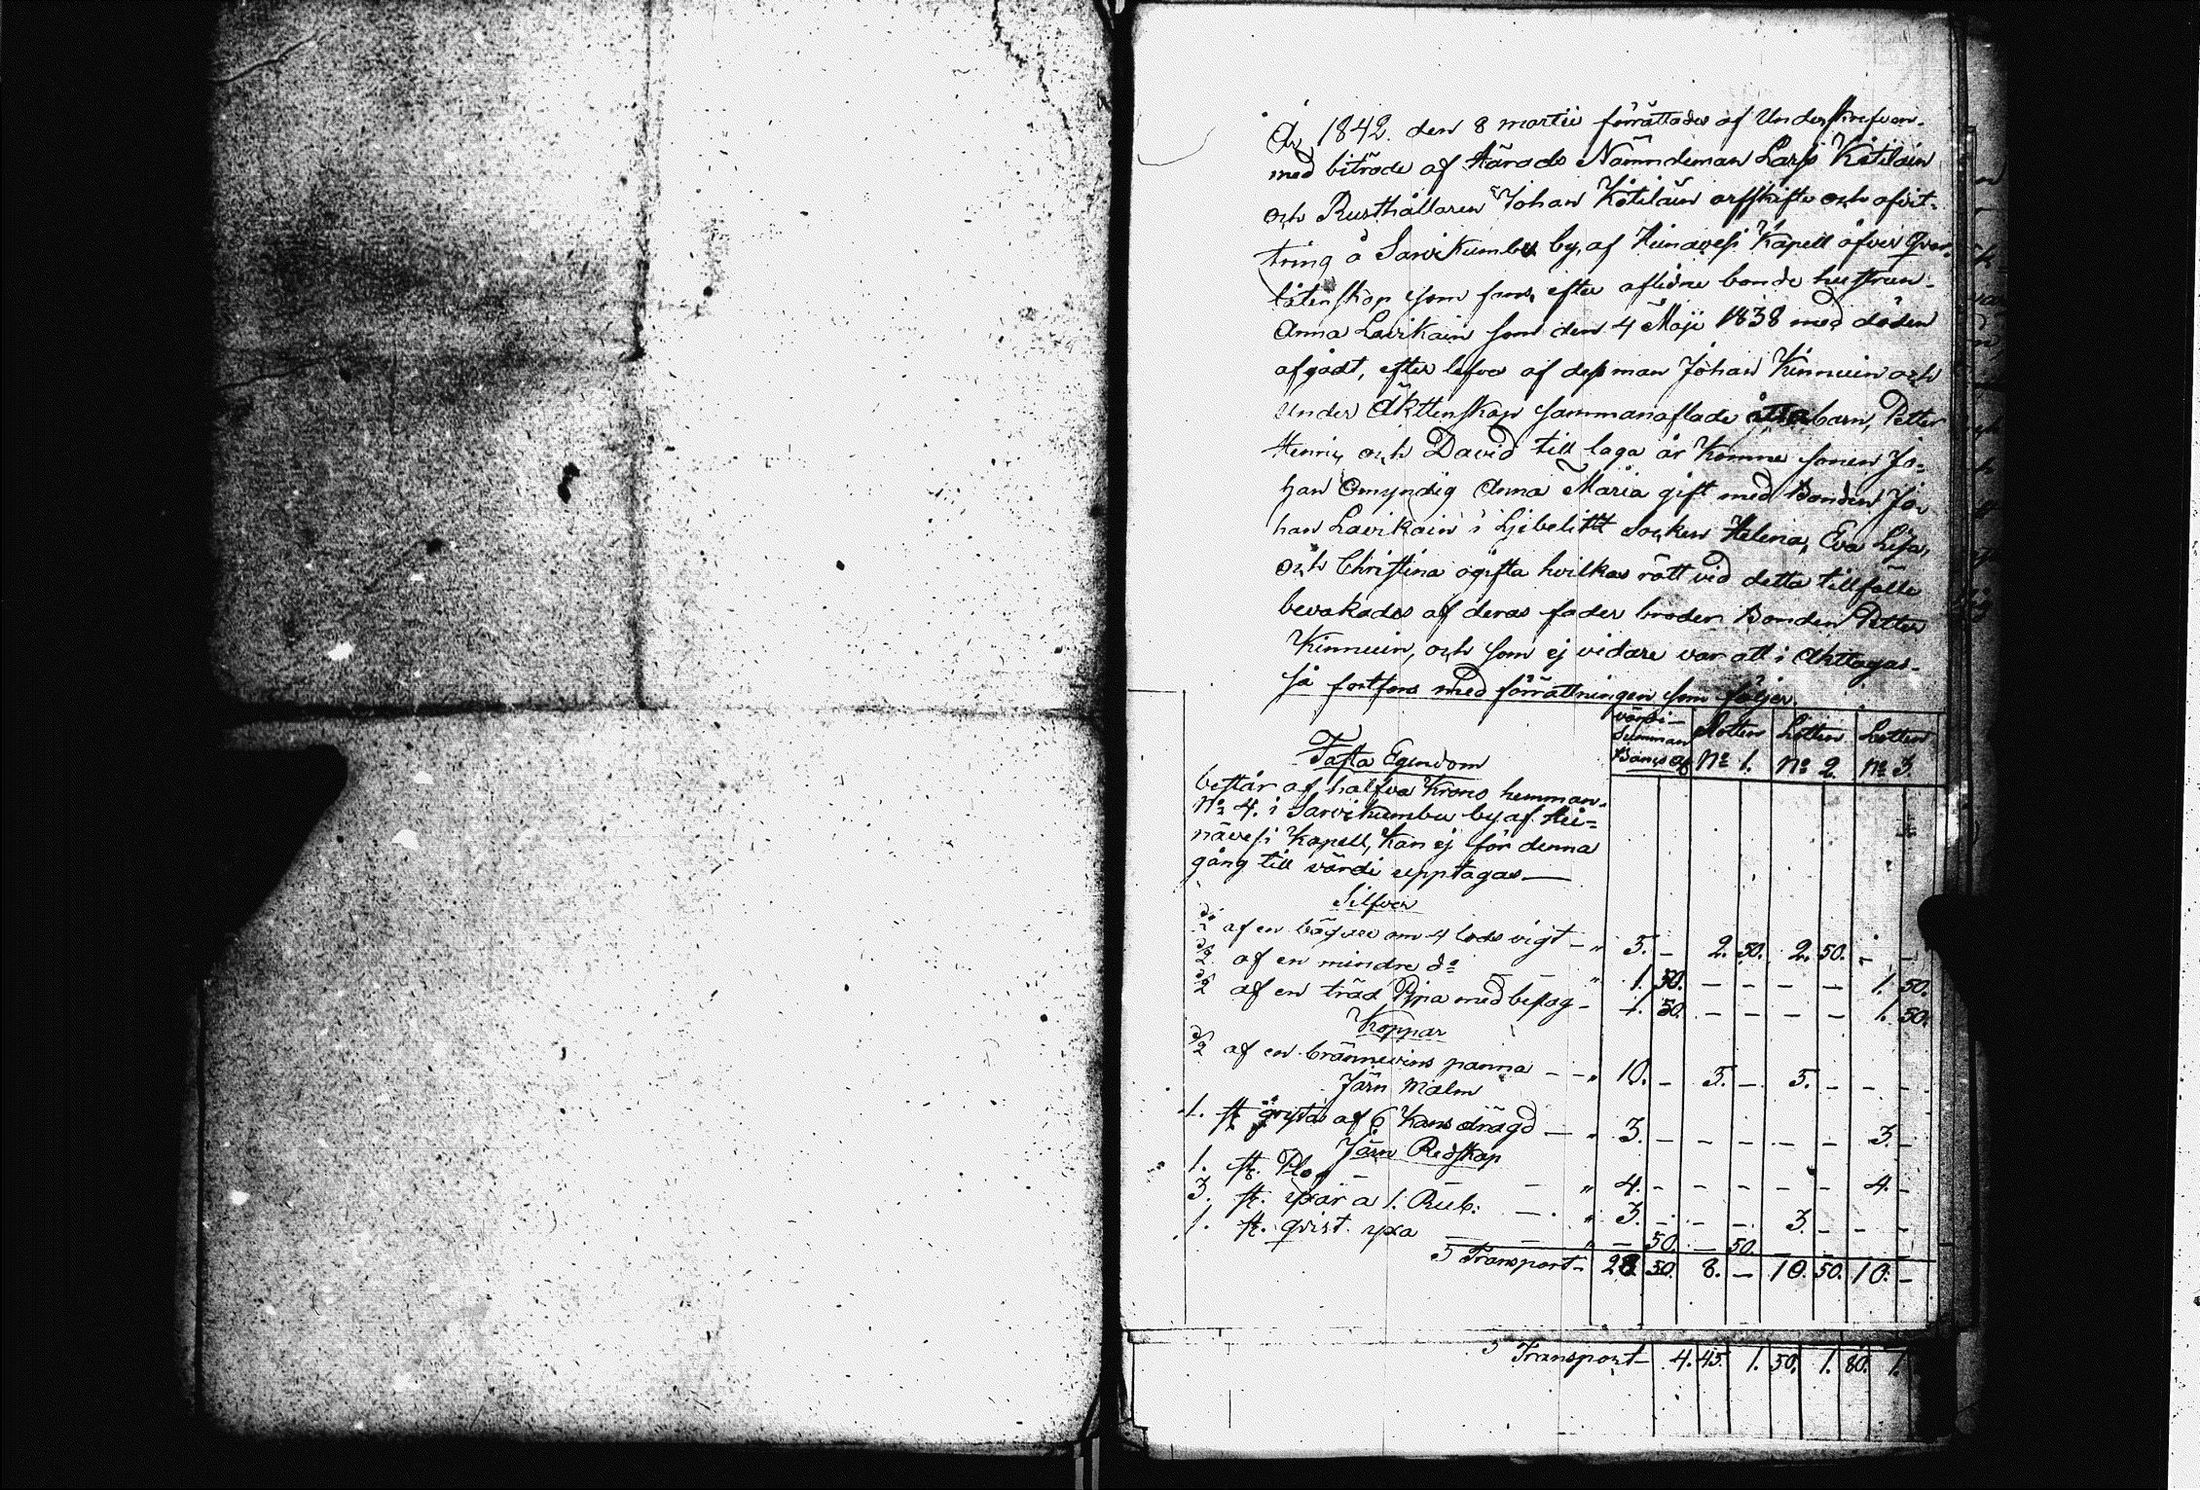 År 1842. den 8 martii förrättades af Underskrefven.
med biträde af Härads Nämndeman Lars Kötiläin
och Rusthållaren Johan Kötiläin arfskifte och afvit-
tring å Sarvikumbu by, af Heinävesi Kapell öfver qvar-
låtenskap som fans, efter aflidne bonde hustrun
Anna Lavikain som den 4 Maji 1838 med döden
afgådt, efter lefvo af dess man Johan Kinnuin och
under Äktenskap sammanaflade åtta barn, Petter
Henric, och David till laga år Komne sonen Jo-
han Omyndig Anna Maria gift med Bonden Jo-
han Lavikain i Libelitt Socken Helena, Eva Lisa,
och Christina ogifta hvilkas rätt vid detta tillfälle
bevakades af deras fader broder Bonden Petter
Kinnuin, och som ej vidare var att i Akttagas-
så fortfors med förrättningen som följer
värdi- Lotten Lotten Lotten
Summan
Banco Nº 1. Nº 2. Nº 3.
Fasta Egendom
består af halfva Krono hemman-
Nº 4. i Sarvikumbu by af Hei-
nävesi Kapell, Kan ej för denna
gång till värde upptagas —
Silfver
af en bägare om 4 lods vigt - " 5. - 2. 50. 2. 50. - -
½ af en mindre dº " 1. 50. - - - - 1. 50.
½ af en träd Pipa med beslag - 1. 50. - - - - 1. 50.
Koppar
½ af en brännevins panna - - " 10. - 5. - 5. - - -
Järn Malm
1. st grytas af 6 Kans drägd - " 3. - - - - - 3. -
Järn Redskap
1. st. Plog - - " 4. - - - - - 4. -
3. st. yxar a 1. Rub. - " 3. - - - 3. - - -
1. st. qvist yxa - - " - 50. - 50. - -
Transport- 28 50. 8. - 10. 50. 10. -
Transport- 4. 45. 1. 50. 1. 80. 1.